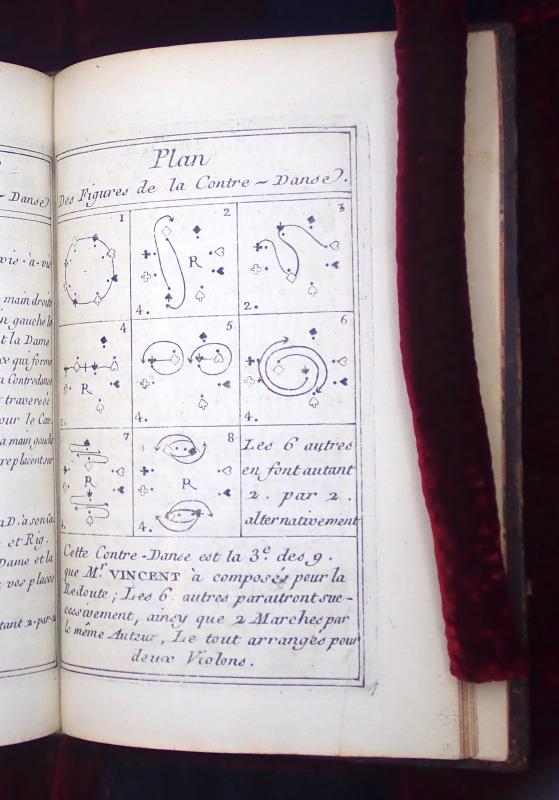 - Danse
vis-à-vis
main droite
in gauche
t la Dame
ce qui forme
Contredanse
traversée
our le Cav.
à main gauche
replacent sur
D. à son Ca.
et Rig.
Dame et la
à vos places
tant 2-par-2
Plan
Des Figures de la Contre - Danse.
1
2
R
4.
3
2.
4
R
2.
5
4.
6
4.
7
R
4.
8
R
4.
Les 6 autres
en font autant
2. par 2.
alternativement
Cette Contre-Danse est la 3.e des 9.
que M.r VINCENT à composés pour la
Redoute; Les 6. autres paraitront suc-
cessivement, ainsy que 2 Marches par
le même Auteur, Le tout arrangés pour
deux Violons.